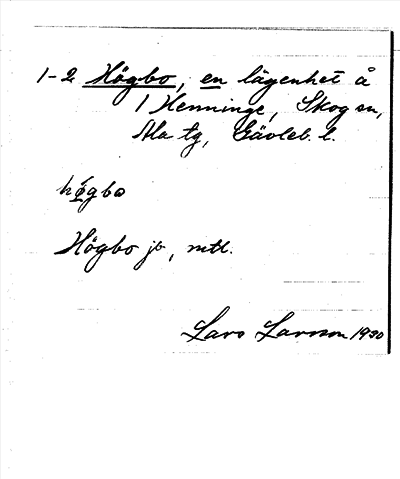 1-2 Högbo, en lägenhet å
1 Henninge, Skog sn,
Ala tg, Gävleb. l.
högbo
Högbo jb, mtl.
Lars Larsson 1930